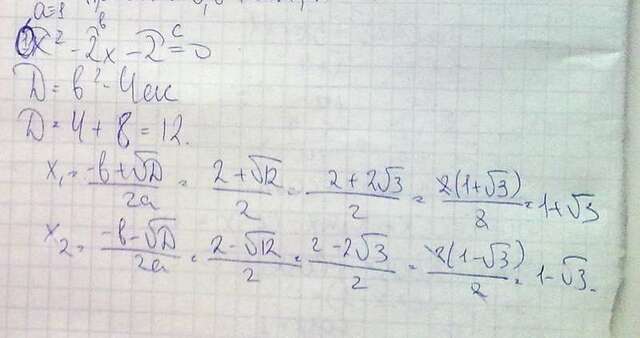 a=1 в с
① x² - 2x - 2 = 0
D = в² - 4ac
D = 4 + 8 = 12.
x₁ = (-в + √D)/2a = (2 + √12)/2 = (2 + 2√3)/2 = 2(1 + √3)/2 = 1 + √3
x₂ = (-в - √D)/2a = (2 - √12)/2 = (2 - 2√3)/2 = 2(1 - √3)/2 = 1 - √3.